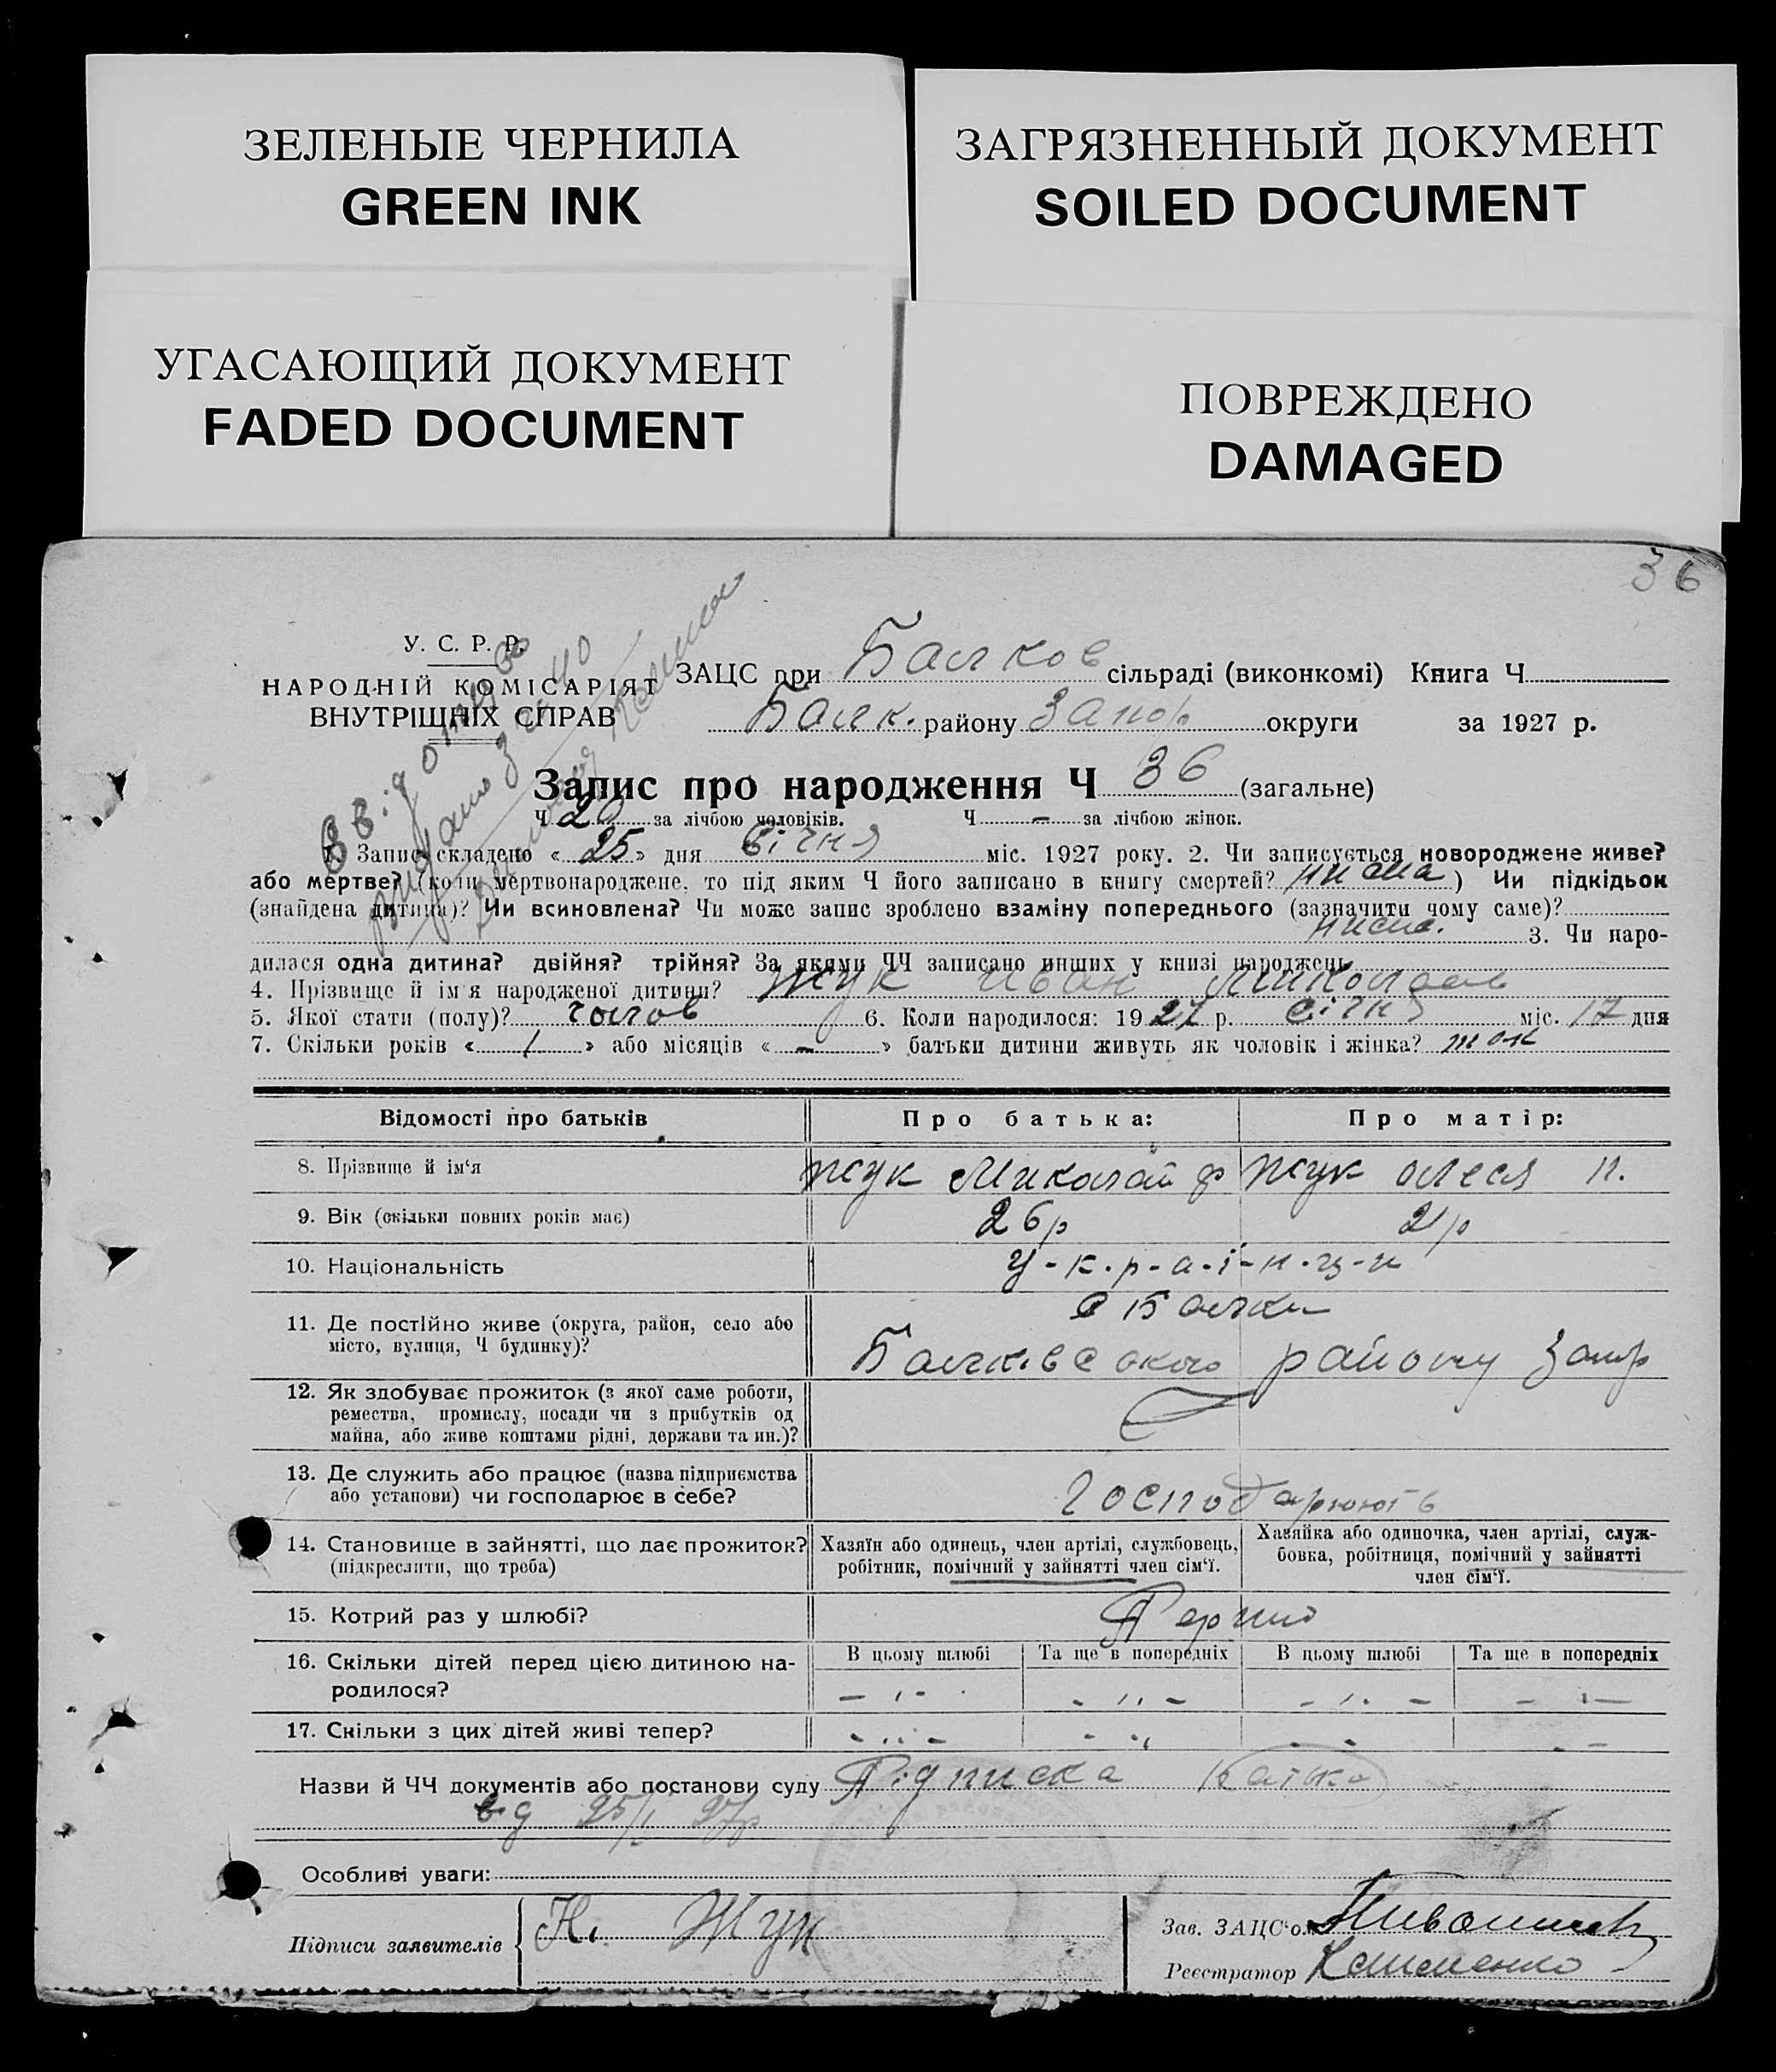 ЗЕЛЕНЫЕ ЧЕРНИЛА
GREEN INK
ЗАГРЯЗНЕННЫЙ ДОКУМЕНТ
SOILED DOCUMENT
УГАСАЮЩИЙ ДОКУМЕНТ
FADED DOCUMENT
ПОВРЕЖДЕНО
DAMAGED
36
У. С. Р. Р.
НАРОДНІЙ КОМІСАРІЯТ
ВНУТРІШНІХ СПРАВ
ЗАЦС при Балков сільраді (виконкомі) Книга Ч
Балк. району Запор округи за 1927 р.
Запис про народження Ч 36 (загальне)
Ч 20 за лічбою чоловіків. Ч — за лічбою жінок.
1. Запис складено « 25 » дня Січня міс. 1927 року. 2. Чи записується новороджене живе?
або мертве? (коли мертвонароджене, то під яким Ч його записано в книгу смертей? ) Чи підкідьок
(знайдена дитина)? Чи всиновлена? Чи може запис зроблено взаміну попереднього (зазначити чому саме)?
3. Чи наро-
дилася одна дитина? двійня? трійня? За якими ЧЧ записано инших у книзі народжень
4. Прізвище й ім'я народженої дитини? Жук Иван Миколаев
5. Якої стати (полу)? чолов 6. Коли народилося: 1927 р. Січня міс. 17 дня
7. Скільки років « 1 » або місяців « — » батьки дитини живуть як чоловік і жінка? так
Відомості про батьків Про батька: Про матір:
8. Прізвище й ім'я Жук Миколай Ф Жук Олеся П.
9. Вік (скільки повних років має) 26р 21р
10. Національність У-к-р-а-ї-н-ц-и
11. Де постійно живе (округа, район, село або
місто, вулиця, Ч будинку)?
с Балки
Балківського району Запр
12. Як здобуває прожиток (з якої саме роботи,
ремества, промислу, посади чи з прибутків од
майна, або живе коштами рідні, держави та ин.)?
13. Де служить або працює (назва підприємства
або установи) чи господарює в себе?
Господарюють
14. Становище в зайнятті, що дає прожиток?
(підкреслити, що треба)
Хазяїн або одинець, член артілі, службовець,
робітник, помічний у зайнятті член сім'ї.
Хазяйка або одиночка, член артілі, служ-
бовка, робітниця, помічний у зайнятті
член сім'ї.
15. Котрий раз у шлюбі? Перший
16. Скільки дітей перед цією дитиною на-
родилося?
В цьому шлюбі Та ще в попередніх В цьому шлюбі Та ще в попередніх
17. Скільки з цих дітей живі тепер?
Назви й ЧЧ документів або постанови суду Підписка батька
від 25/I 27р
Особливі уваги:
Підписи заявителів Н. Жук
Зав. ЗАЦС'ом
Реєстратор Клименко